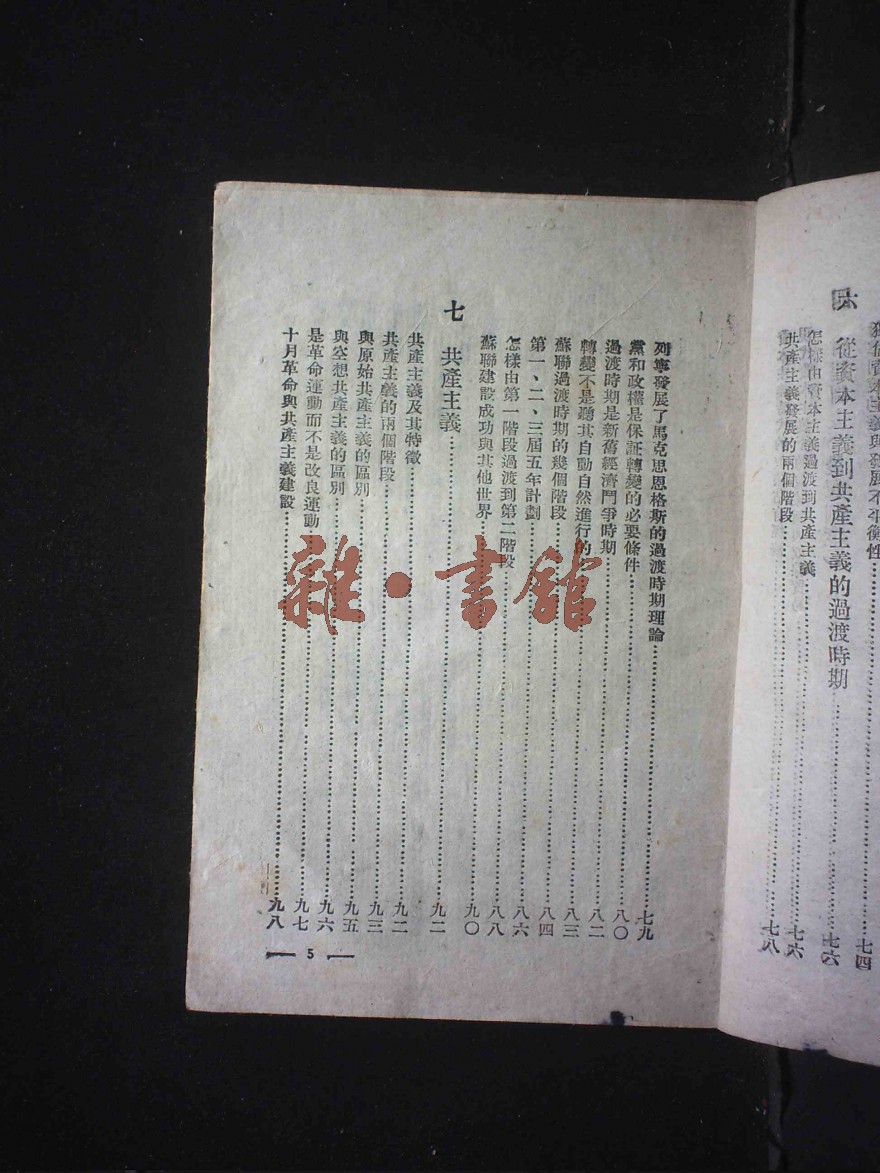 發展不平衡性……七四
六 從資本主義到共產主義的過渡時期……七六
怎樣由資本主義過渡到共產主義……七六
共產主義發展的兩個階段……七八
列寧發展了馬克思恩格斯的過渡時期理論……七九
黨和政權是保証轉變的必要條件……八〇
過渡時期是新舊經濟鬥爭時期……八二
轉變不是聽其自動自然進行的……八三
蘇聯過渡時期的幾個階段……八四
第一、二、三屆五年計劃……八六
怎樣由第一階段過渡到第二階段……八八
蘇聯建設成功與其他世界……九〇
七 共產主義……九二
共產主義及其特徵……九二
共產主義的兩個階段……九三
與原始共產主義的區別……九五
與空想共產主義的區別……九六
是革命運動而不是改良運動……九七
十月革命與共產主義建設……九八
5
雜·書館